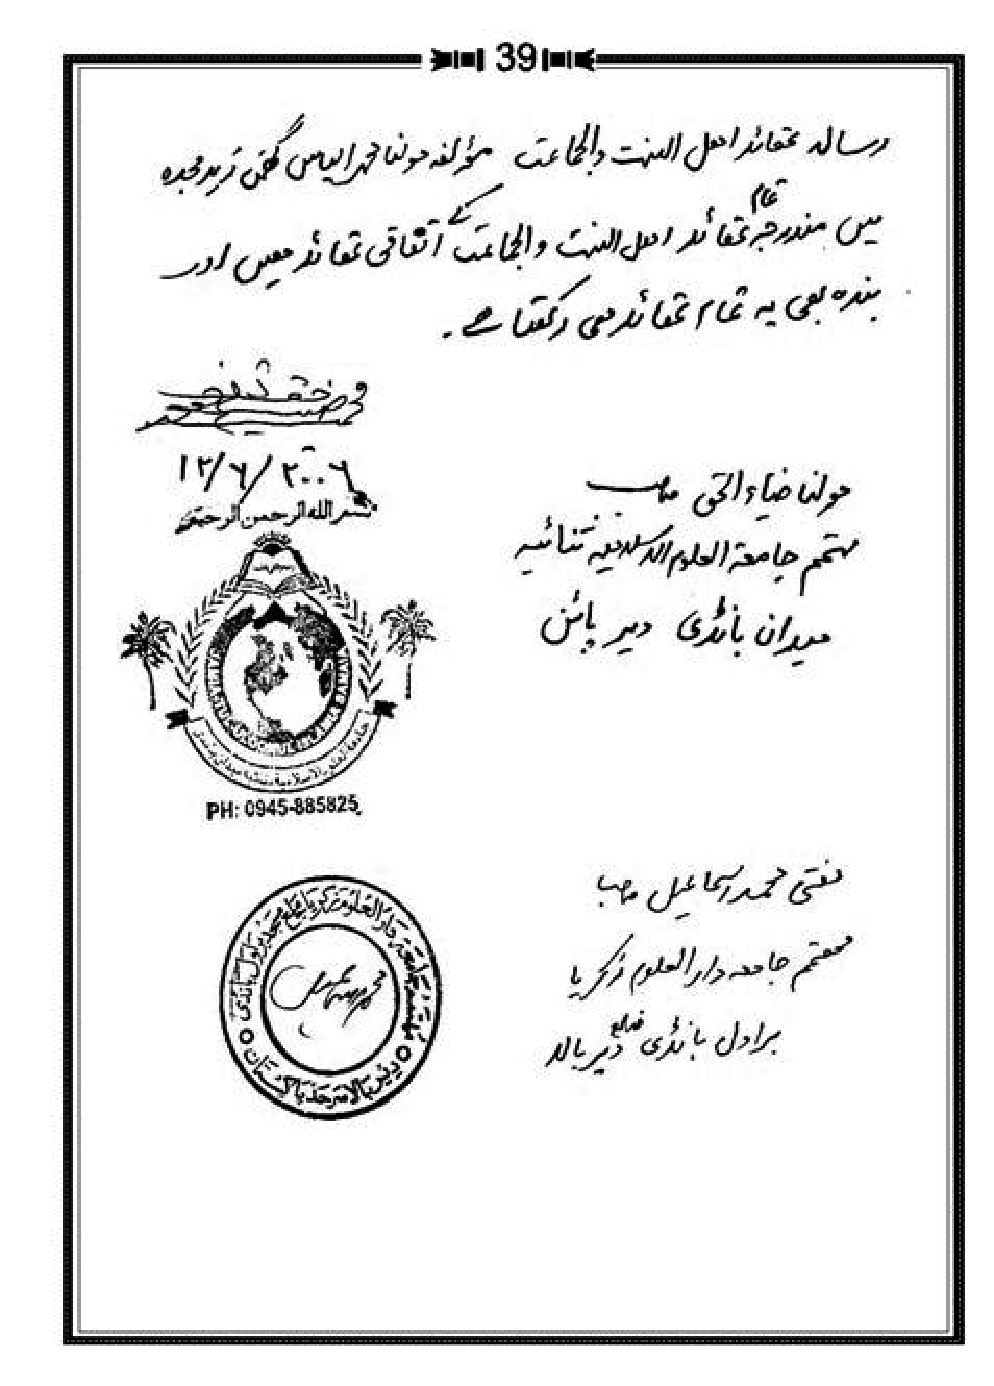 39
رسالہ عقائد اھل السنت والجماعت مؤلفہ مولنا محمد الیاس گھمن زید مجدہ
میں مندرجہ تمام عقائد اھل السنت والجماعت کے اتفاقی عقائد ھیں اور
بندہ بھی یہ تمام عقائد ھی رکھتا ھے۔
۱۲/۶/۲۰۰۶
بسم الله الرحمن الرحيم
مولنا ضیاء الحق صاحب
مہتمم جامعۃ العلوم الاسلامیہ ثنائیہ
میدان بانڈی دیر پائن
PH: 0945-885825
مفتی محمد اسماعیل صاحب
مھتمم جامعہ دارالعلوم زکریا
براول بانڈی ضلع دیر بالا
دیر بالا سرحد پاکستان